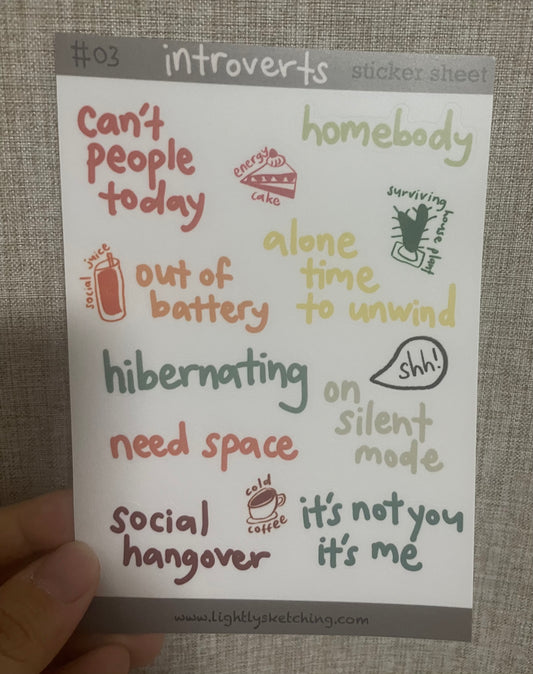 #03 introverts sticker sheet
can't
people
today
homebody
energy
cake
surviving house plant
alone
time
to unwind
social juice
out of
battery
hibernating
shh!
on
silent
mode
need space
cold
coffee
social
hangover
it's not you
it's me
www.lightlysketching.com